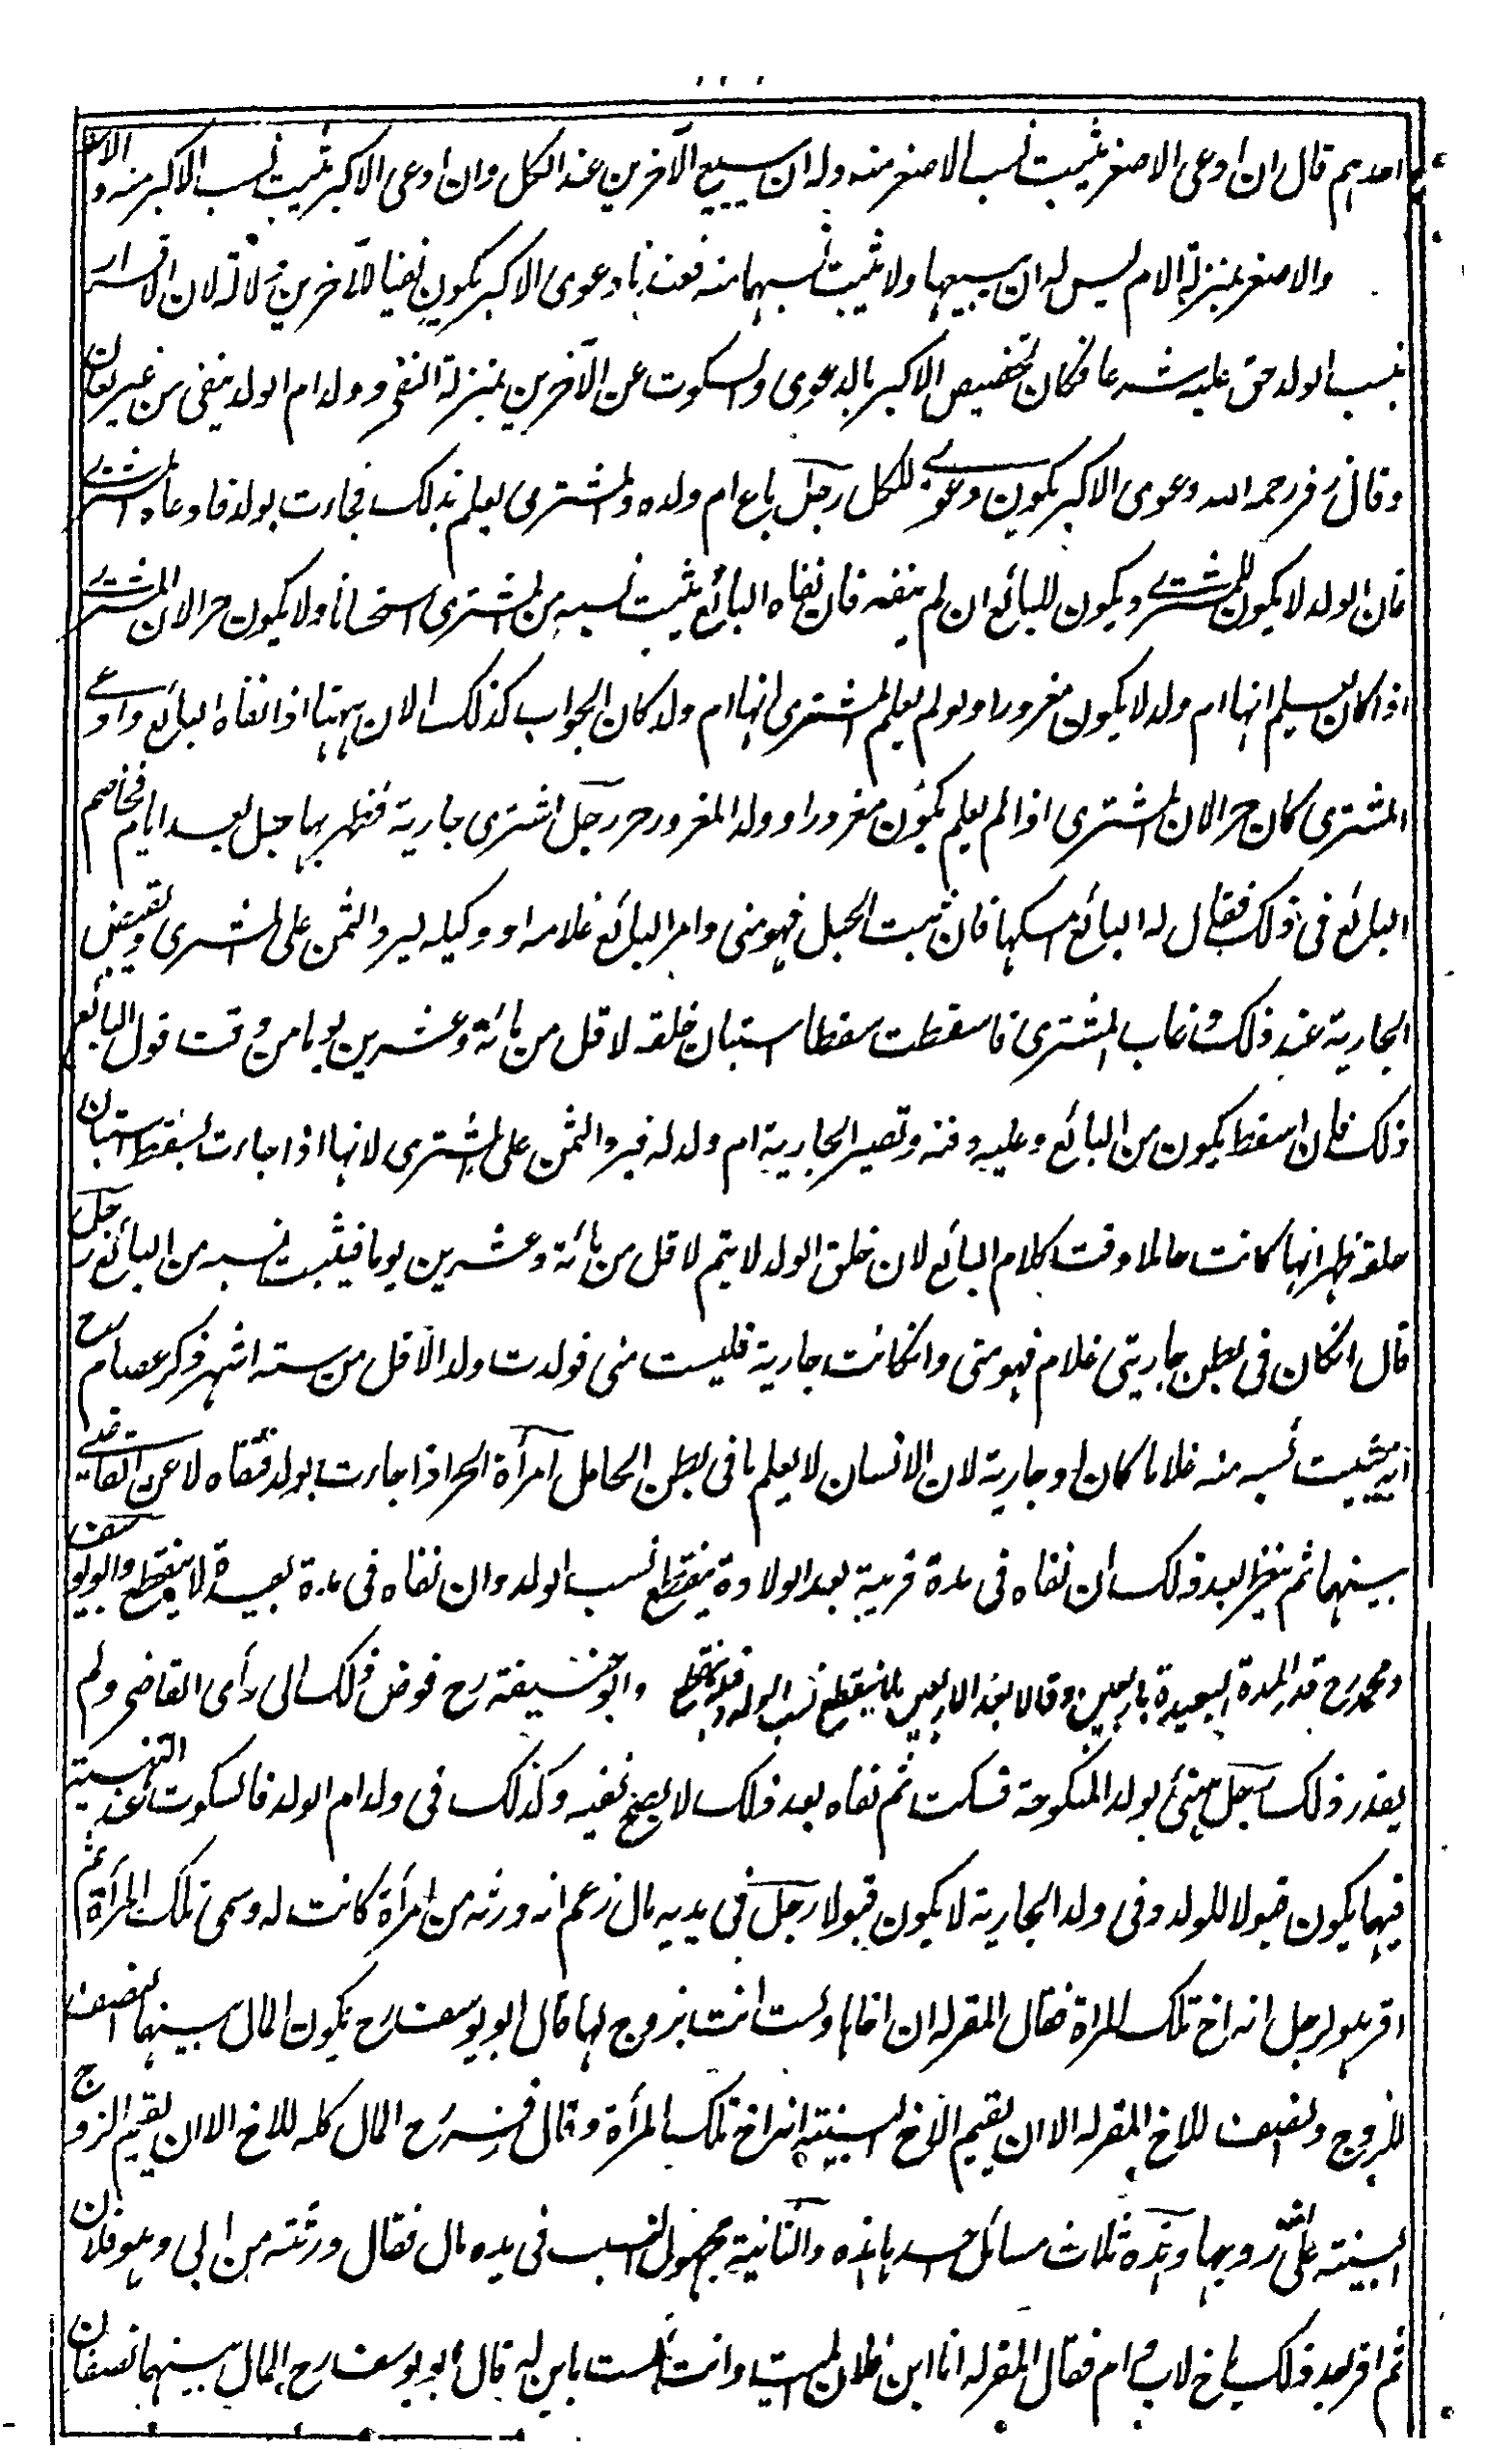 احدهم قال ان ادعى الاصغر يثبت نسب الاصغر منه وله ان يبيع الآخرين عند الكل وان ادعى الاكبر يثبت نسب الاكبر منه و الاوسط
والاصغر بمنزلة الام ليس له ان يبيعها ولا يثبت نسبهما منه فعندنا دعوى الاكبر يكون نفيا للآخرين دلالة لان الاقرار
بنسب الولد حق عليه شرعا فكان تخصيص الاكبر بالدعوى والسكوت عن الآخرين بمنزلة النفي وولد ام الولد ينفى من غير لعان
وقال زفر رحمه الله دعوى الاكبر يكون دعوى للكل رجل باع ام ولده والمشترى يعلم بذلك فجاءت بولد فادعاه المشترى
فان الولد لا يكون للمشترى ويكون للبائع ان لم ينفه فان نفاه البائع يثبت نسبه من المشترى استحسانا ولا يكون حرا لان المشترى
اذا كان يعلم انها ام ولد لا يكون مغرورا ولو لم يعلم المشترى انها ام ولد كان الجواب كذلك الا ان ههنا اذا نفاه البائع وادعى
المشترى كان حرا لان المشترى اذا لم يعلم يكون مغرورا وولد المغرور حر رجل اشترى جارية فظهر بها حبل بعد ايام فخاصم
البائع فى ذلك فقال له البائع امسكها فان ثبت الحبل فهو منى وامر البائع غلامه او وكيله ليرد الثمن على المشترى ويقبض
الجارية عند ذلك وغاب المشترى فاسقطت سقطا استبان خلقه لاقل من مائة وعشرين يوما من وقت قول البائع
ذلك فان السقط يكون من البائع وعليه دفنه وتصير الجارية ام ولد له فيرد الثمن على المشترى لانها اذا جاءت بسقط استبان
خلقه ظهر انها كانت حاملا وقت كلام البائع لان خلق الولد لا يتم لاقل من مائة وعشرين يوما فيثبت نسبه من البائع رجل
قال انكان فى بطن جاريتى غلام فهو منى وانكانت جارية فليست منى فولدت ولدا لاقل من ستة اشهر ذكر عصام رح
انه يثبت نسبه منه غلاما كان او جارية لان الانسان لا يعلم ما فى بطن الحامل امرأة الحر اذا جاءت بولد فنفاه لاعن القاضى
بينهما ثم ينظر بعد ذلك ان نفاه فى مدة قريبة بعد الولادة ينقطع نسب الولد وان نفاه فى مدة بعيدة لا ينقطع وابو يوسف
ومحمد رح قدرا المدة البعيدة باربعين وقالا بعد الاربعين لا ينقطع نسب الولد وابو حنيفة رح فوض ذلك الى رأى القاضى ولم
يقدر ذلك رجل هنئ بولد المنكوحة فسكت ثم نفاه بعد ذلك لا يصح نفيه وكذلك فى ولد ام الولد فالسكوت عند التهنية
فيها يكون قبولا للولد وفى ولد الجارية لا يكون قبولا رجل فى يديه مال زعم انه ورثه من امرأة كانت له وسمى تلك المرأة ثم
اقر هو لرجل انه اخ تلك المرأة فقال المقر له ان اخاها ولست انت بزوج لها قال ابو يوسف رح يكون المال بينهما النصف
للزوج والنصف للاخ المقر له الا ان يقيم الاخ البينة انه اخ تلك المرأة وقال زفر رح المال كله للاخ الا ان يقيم الزوج
البينة على انه زوجها وهذه ثلاث مسائل احدها هذه والثانية مجهول النسب فى يده مال فقال ورثته من ابى وهو فلان
ثم اقر بعد ذلك باخ لاب وام فقال المقر له انا ابن فلان الميت وانت لست بابن له قال ابو يوسف رح المال بينهما نصفان